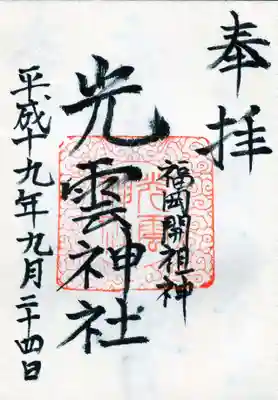 奉拝
福岡開祖神
光雲神社
平成十九年九月二十四日